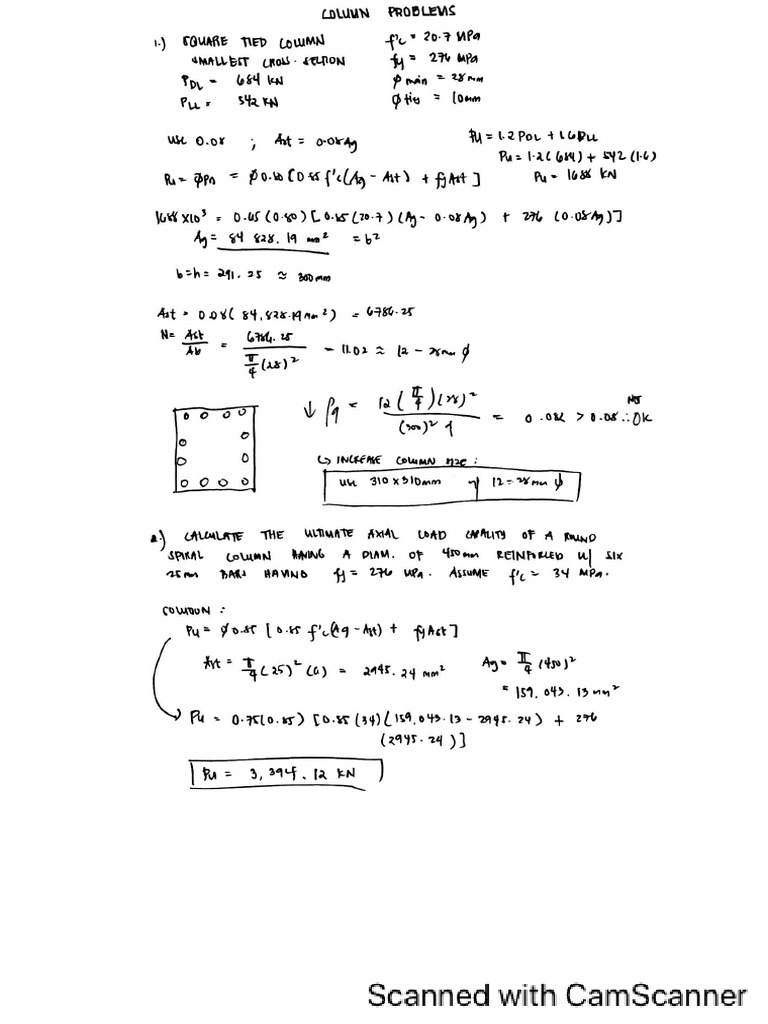 COLUMN PROBLEMS
1.) SQUARE TIED COLUMN f'c = 20.7 MPa
SMALLEST CROSS-SECTION fy = 276 MPa
PDL = 684 KN Φ main = 28mm
PLL = 542 KN Φ ties = 10mm
use 0.08 ; Ast = 0.08Ag Pu = 1.2PDL + 1.6PLL
Pu = 1.2(684) + 542(1.6)
Pu = ΦPn = Φ0.80[0.85 f'c(Ag - Ast) + fyAst] Pu = 1688 KN
1688 x10³ = 0.65(0.80)[0.85(20.7)(Ag - 0.08Ag) + 276(0.08Ag)]
Ag = 84 828.19 mm² = b²
b=h = 291.25 ≈ 300mm
Ast = 0.08(84,828.19mm²) = 6786.25
N = Ast/Ab = 6786.25 / π/4(28)² = 11.02 ≈ 12 - 28mm Φ
↓ ρg = 12(π/4)(28)² / (300)² ↑ = 0.082 > 0.08 ∴ NOT OK
↳ INCREASE COLUMN SIZE :
use 310 x 310mm w/ 12 - 28mm Φ
2.) CALCULATE THE ULTIMATE AXIAL LOAD CAPACITY OF A ROUND
SPIRAL COLUMN HAVING A DIAM. OF 450mm REINFORCED w/ SIX
25mm BARS HAVING fy = 276 MPa. ASSUME f'c = 34 MPa.
SOLUTION :
Pu = Φ0.85 [0.85 f'c(Ag - Ast) + fyAst]
Ast = π/4(25)²(6) = 2945.24 mm² Ag = π/4(450)²
= 159,043.13 mm²
Pu = 0.75(0.85)[0.85(34)(159,043.13 - 2945.24) + 276
(2945.24)]
Pu = 3,394.12 KN
Scanned with CamScanner